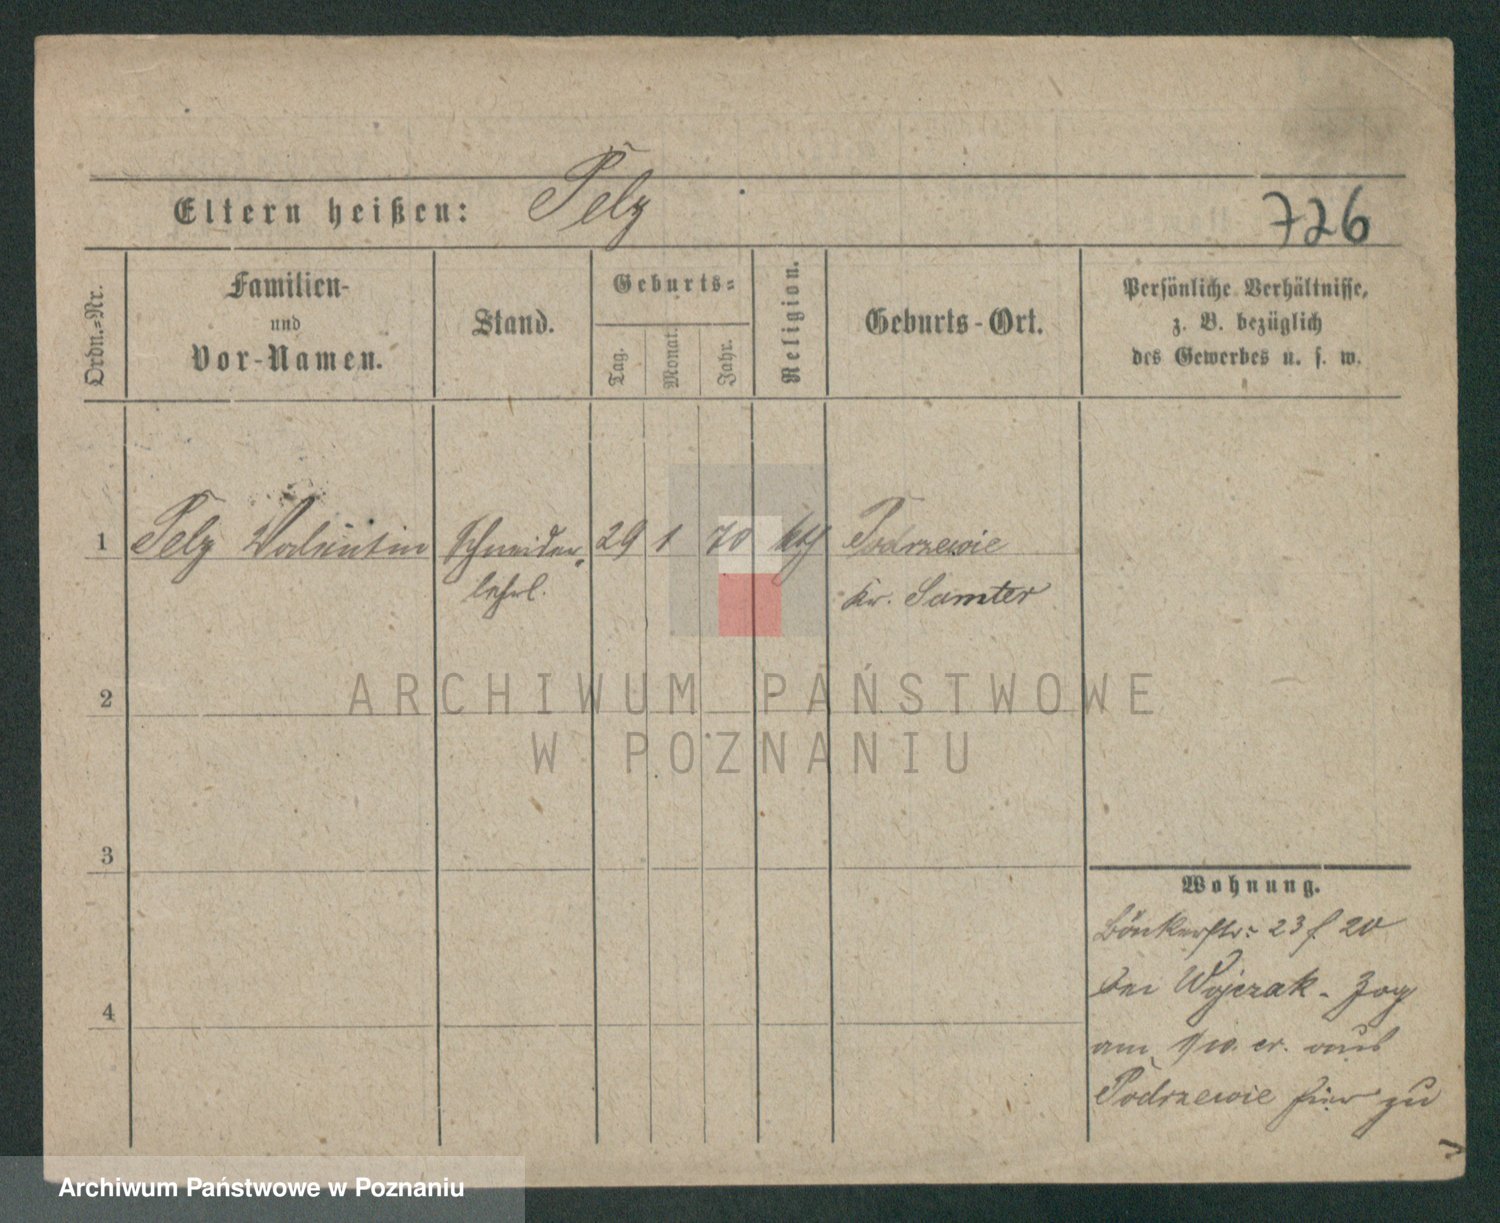 Eltern heißen: Pelz
726
Ordn.=Nr.
Familien-
und
Vor-Namen.
Stand.
Geburts=
Tag.
Monat.
Jahr.
Religion.
Geburts-Ort.
Persönliche Verhältnisse,
z. B. bezüglich
des Gewerbes u. s. w.
1 Pelz Valentin Schneider- 29 1 70 kth Podrzewie
lehrl. Kr. Samter
2
3
4
Wohnung.
23 f 20
bei Wojczak - Zog
am 1/10. cr. aus
Podrzewie hier zu
ARCHIWUM PAŃSTWOWE
W POZNANIU
Archiwum Państwowe w Poznaniu